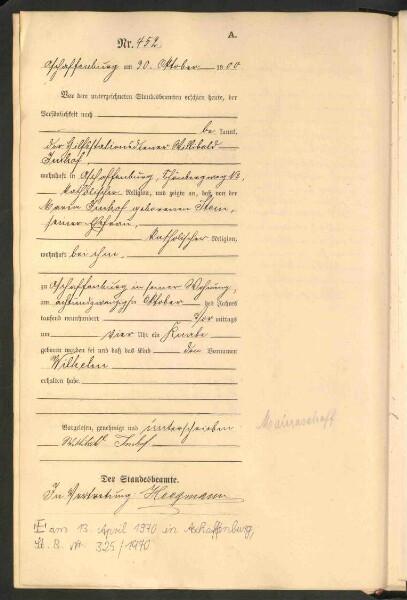 A.
Nr. 452
Aschaffenburg am 30. Oktober 1900
Vor dem unterzeichneten Standesbeamten erschien heute, der
Persönlichkeit nach
be kannt,
der Hilfsstationsdiener Willibald
Imhof,
wohnhaft in Aschaffenburg,
katholischer Religion, und zeigte an, daß von der
Maria Imhof geborenen Stein,
seiner Ehefrau,
katholischer Religion,
wohnhaft bei ihm,
zu Aschaffenburg in seiner Wohnung,
am achtundzwanzigsten Oktober des Jahres
tausend neunhundert vor mittags
um vier Uhr ein Knabe
geboren worden sei und daß das Kind den Vornamen
Wilhelm
erhalten habe.
Vorgelesen, genehmigt und unterschrieben
Willibald Imhof
Mainaschaff
Der Standesbeamte.
In Vertretung Hegmann
E am 13. April 1970 in Aschaffenburg,
St. B. Nr. 325/1970